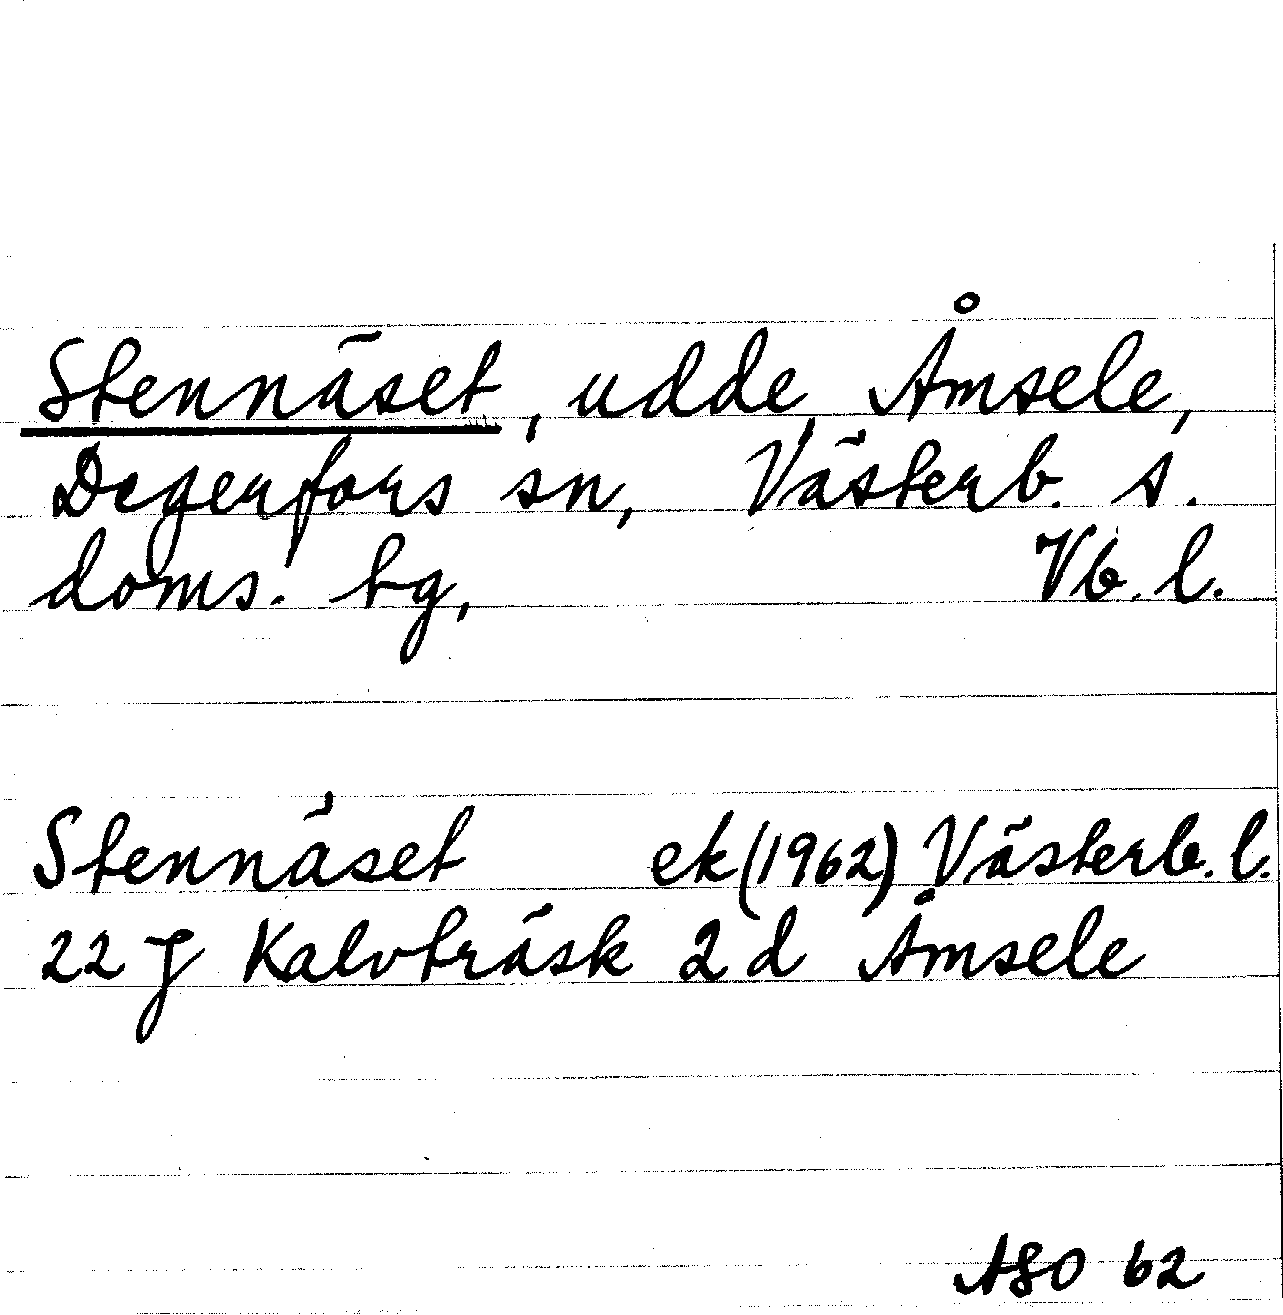 Stennäset, udde, Åmsele,
Degerfors sn, Västerb. s.
doms. tg, Vb. l.
Stennäset ek (1962) Västerb. l.
22 J Kalvträsk 2 d Åmsele
ASO 62